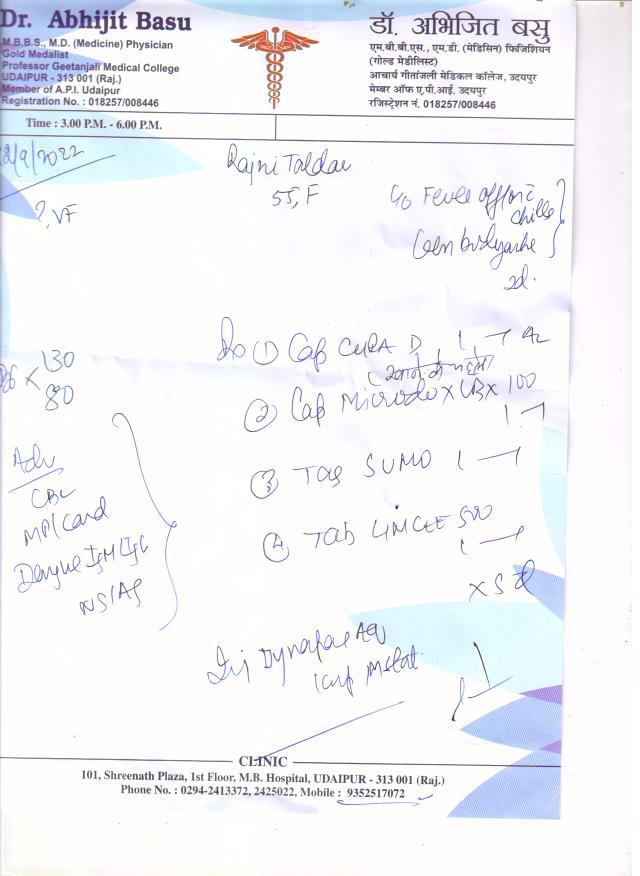 Dr. Abhijit Basu
M.B.B.S., M.D. (Medicine) Physician
Gold Medalist
Professor Geetanjali Medical College
UDAIPUR - 313 001 (Raj.)
Member of A.P.I. Udaipur
Registration No. : 018257/008446
डॉ. अभिजित बसु
एम.बी.बी.एस., एम.डी. (मेडिसिन) फिजिशियन
(गोल्ड मेडीलिस्ट)
आचार्य गीतांजली मेडिकल कॉलेज, उदयपुर
मेम्बर ऑफ ए.पी.आई. उदयपुर
रजिस्ट्रेशन नं. 018257/008446
Time : 3.00 P.M. - 6.00 P.M.
/9/2022
Rajni
55, F
?, VF
C/o Fever
chills
2d.
① Cap D 1
130
80
② Cap 100
③ Tab SUMO 1
④ Tab 500
Adv
CBC
MP/Card
Dengue IgM/IgG
NS1Ag
Inj Dynapar AQ
CLINIC
101, Shreenath Plaza, 1st Floor, M.B. Hospital, UDAIPUR - 313 001 (Raj.)
Phone No. : 0294-2413372, 2425022, Mobile : 9352517072